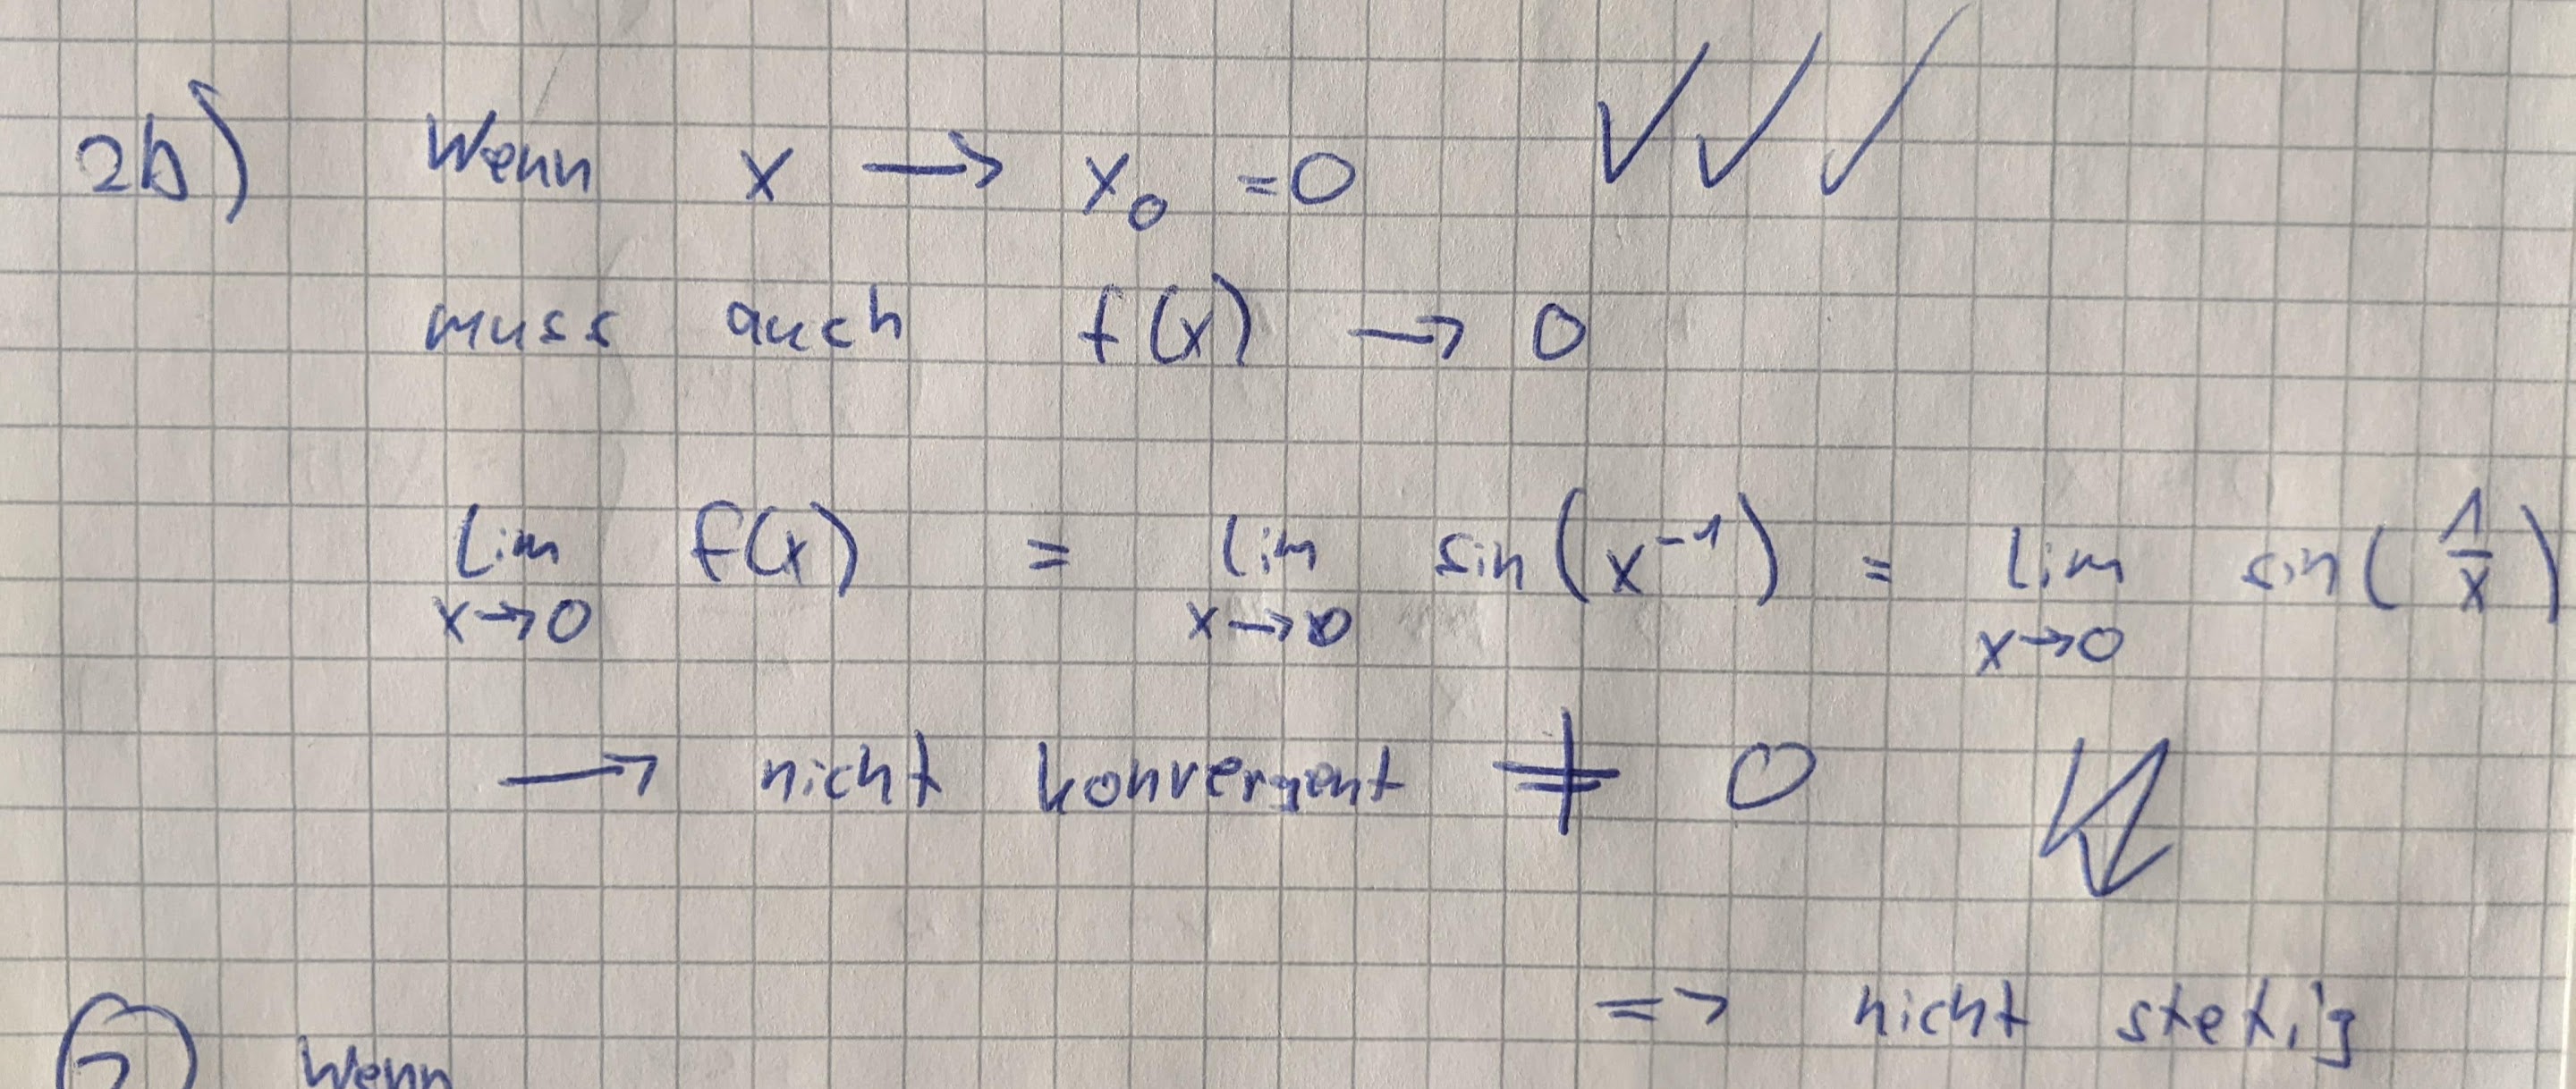 2b) Wenn x → x₀ = 0 ✓✓✓
muss auch f(x) → 0
lim f(x) = lim sin(x⁻¹) = lim sin(1/x)
x→0 x→0 x→0
→ nicht konvergent ≠ 0 ↯
=> nicht stetig
Wenn